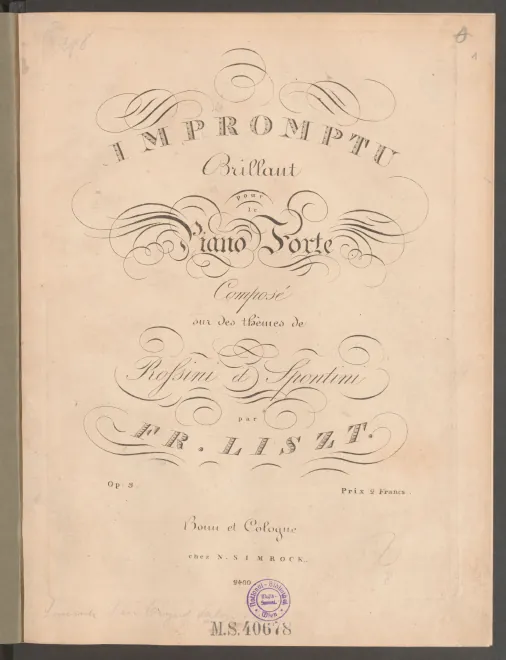 1
IMPROMPTU
Brillant
pour
le
Piano Forte
Composé
sur des thêmes de
Rossini et Spontini
par
FR. LISZT.
Op. 3.
Prix 2 Francs.
Bonn et Cologne
chez N. SIMROCK.
National-Bibliothek
Wien
M.S. 40678